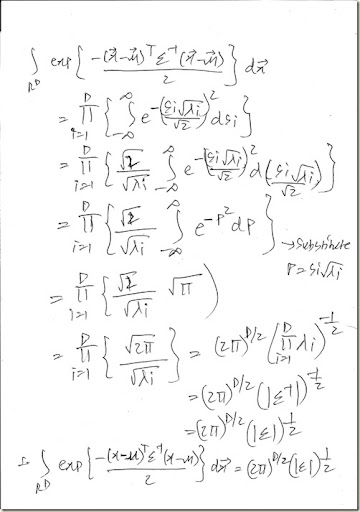 ∫_{ℝ^D} exp{ -(x⃗-μ⃗)^T Σ^{-1} (x⃗-μ⃗) / 2 } dx⃗
= ∏_{i=1}^{D} { ∫_{-∞}^{∞} e^{-(s_i√λ_i / √2)^2} ds_i }
= ∏_{i=1}^{D} { √2/√λ_i ∫_{-∞}^{∞} e^{-(s_i√λ_i / √2)^2} d(s_i√λ_i / √2) }
= ∏_{i=1}^{D} { √2/√λ_i ∫_{-∞}^{∞} e^{-p^2} dp } → substitute
p = s_i√λ_i
= ∏_{i=1}^{D} { √2/√λ_i √π )
= ∏_{i=1}^{D} { √2π/√λ_i } = (2π)^{D/2} ( ∏_{i=1}^{D} λ_i )^{-1/2}
= (2π)^{D/2} (|Σ^{-1}|)^{-1/2}
= (2π)^{D/2} (|Σ|)^{1/2}
∫_{ℝ^D} exp{ -(x-μ)^T Σ^{-1} (x-μ) / 2 } dx⃗ = (2π)^{D/2} (|Σ|)^{1/2}